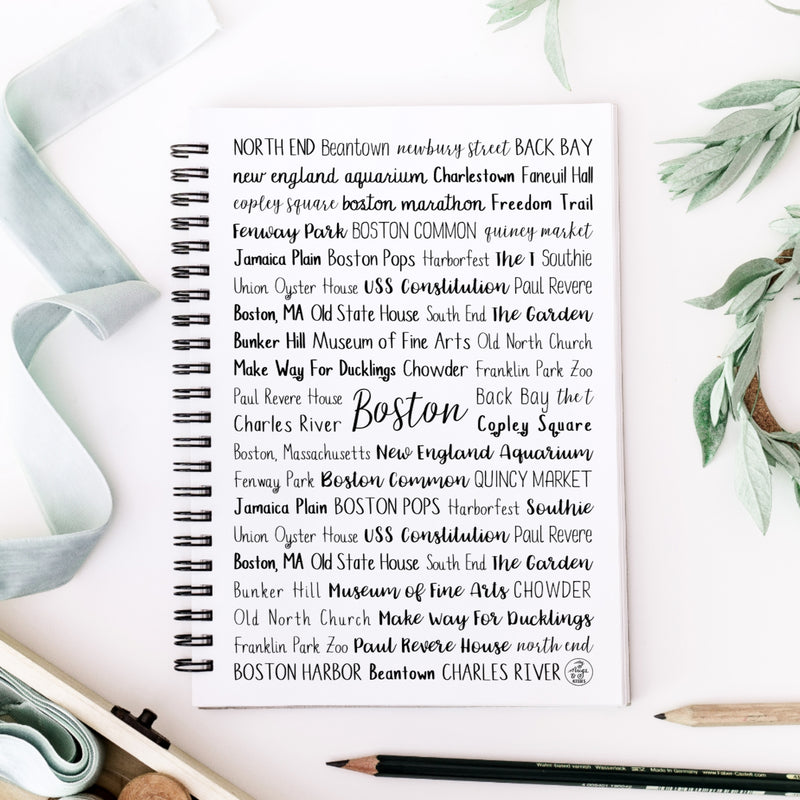 NORTH END Beantown newbury street BACK BAY
new england aquarium Charlestown Faneuil Hall
copley square boston marathon Freedom Trail
Fenway Park BOSTON COMMON quincy market
Jamaica Plain Boston Pops Harborfest The T Southie
Union Oyster House USS Constitution Paul Revere
Boston, MA Old State House South End The Garden
Bunker Hill Museum of Fine Arts Old North Church
Make Way For Ducklings Chowder Franklin Park Zoo
Paul Revere House Back Bay the t
Boston
Charles River Copley Square
Boston, Massachusetts New England Aquarium
Fenway Park Boston Common QUINCY MARKET
Jamaica Plain BOSTON POPS Harborfest Southie
Union Oyster House USS Constitution Paul Revere
Boston, MA Old State House South End The Garden
Bunker Hill Museum of Fine Arts CHOWDER
Old North Church Make Way For Ducklings
Franklin Park Zoo Paul Revere House north end
BOSTON HARBOR Beantown CHARLES RIVER
Made in Germany www.Faber-Castell.com